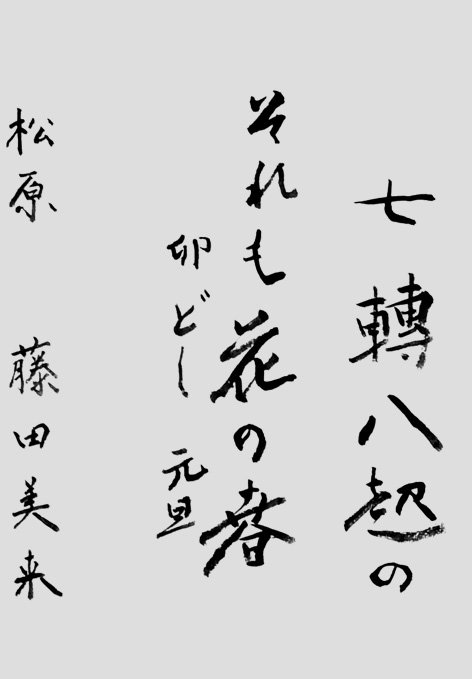 七轉八起の
それも花の春
卯どし 元旦
松原 藤田美来